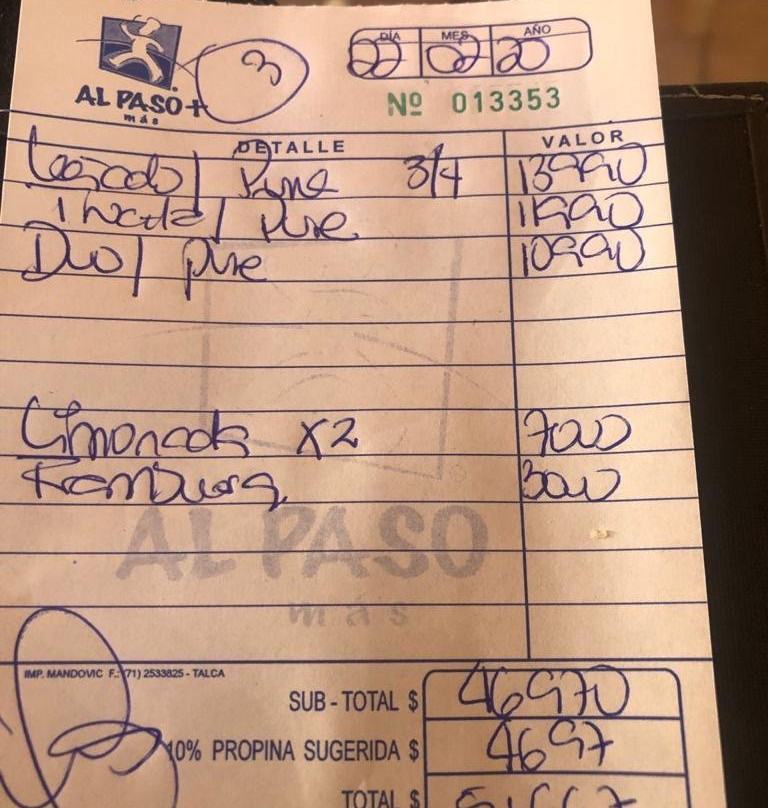 3
DÍA MES AÑO
22 02 20
AL PASO+
más
Nº 013353
DETALLE VALOR
/ Pure 3/4 13990
/ Pure 11990
Duo / pure 10990
Limonada X2 7000
3000
AL PASO
más
IMP. MANDOVIC F.: (71) 2533825 - TALCA
SUB - TOTAL $ 46970
10% PROPINA SUGERIDA $ 4697
TOTAL $